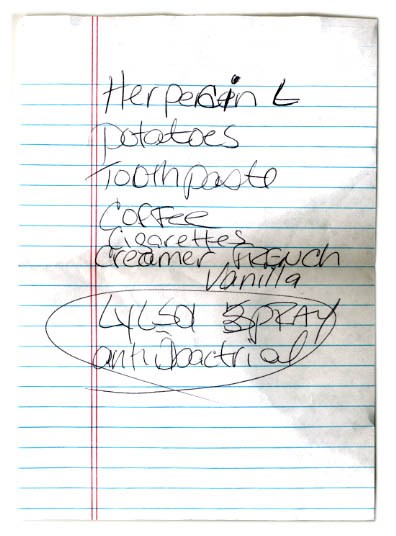 Herpecin L
potatoes
Toothpaste
Coffee
Cigarettes
Creamer FRENCH
Vanilla
LYLSOl SPRAY
antibactrial